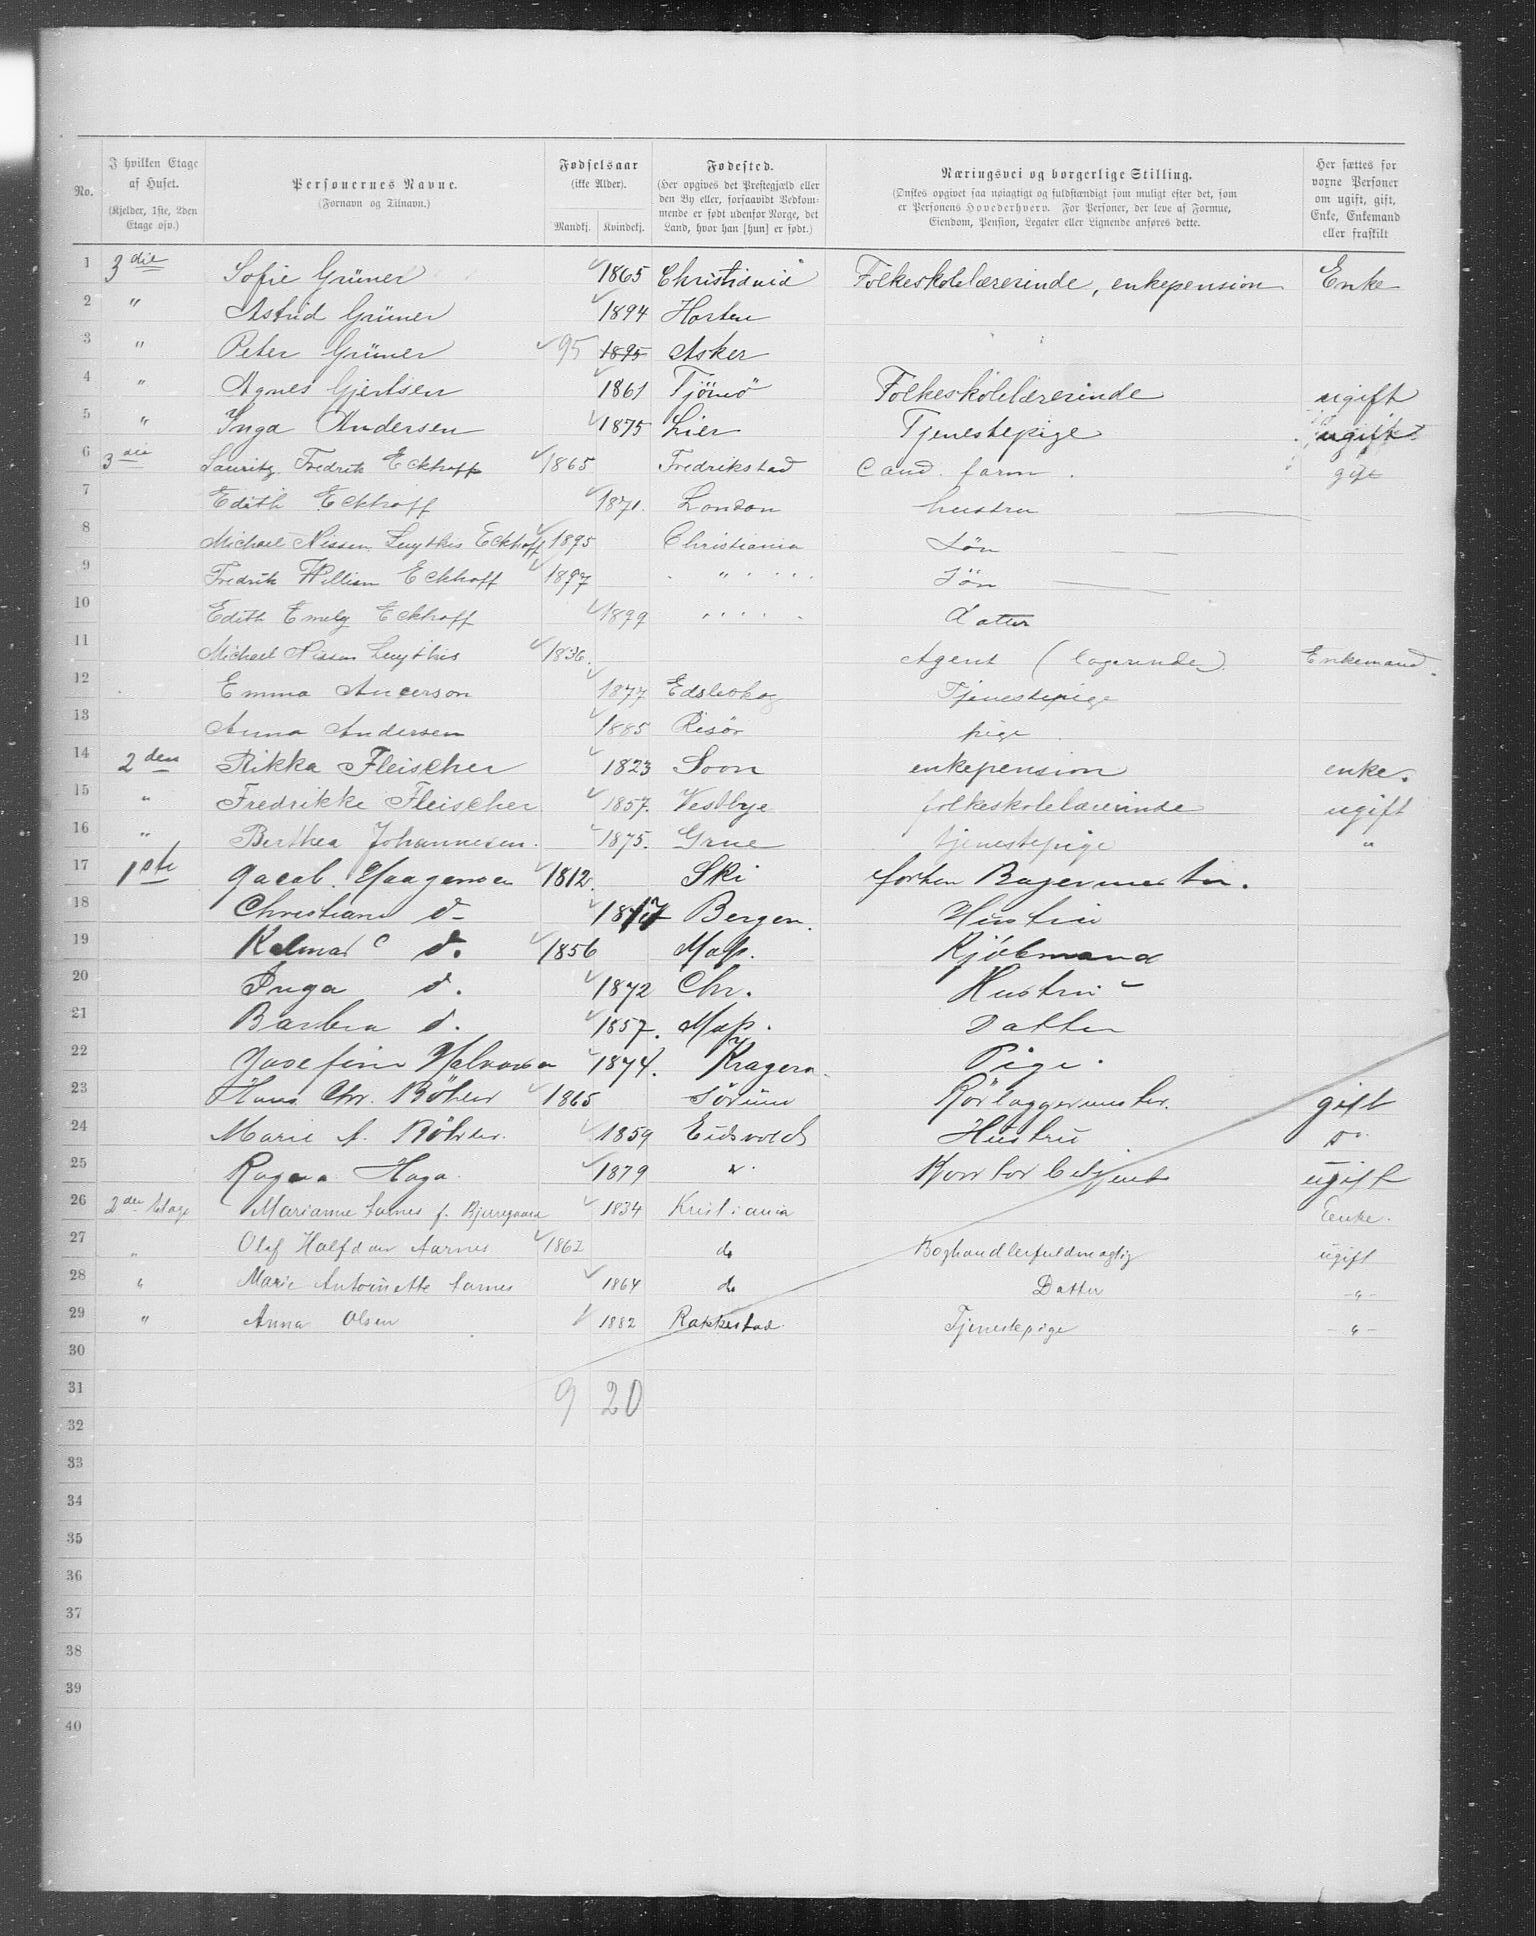 No.
I hvilken Etage af Huset.
(Kjelder, 1ste, 2den Etage osv.)
Personernes Navne.
(Fornavn og Tilnavn.)
Fødselsaar
(ikke Alder).
Mandkj. Kvindekj.
Fødested.
(Her opgives det Prestegjæld eller den By eller, forsaavidt Vedkommende er født udenfor Norge, det Land, hvor han [hun] er født.)
Næringsvei og borgerlige Stilling.
(Ønskes opgivet saa nøiagtigt og fuldstændigt som muligt efter det, som er Personens Hovederhverv. For Personer, der leve af Formue, Eiendom, Pension, Legater eller Lignende anføres dette.
Her sættes for voxne Personer om ugift, gift, Enke, Enkemand eller fraskilt
1 3die Sofie Grüner 1865 Christiania Folkeskolelærerinde, enkepension Enke
2 " Astrid Grüner 1894 Horten
3 " Peter Grüner 95 1895 Asker
4 " Agnes Gjertsen 1861 Tjömö Folkeskolelærerinde ugift
5 " Inga Andersen 1875 Lier Tjenestepige ugift
6 3die Lauritz Fredrik Eckhoff 1865 Fredrikstad Cand. farm. gift
7 Edith Eckhoff 1871. London hustru
8 Michael Nissen Luythis Eckhoff 1895 Christiania Søn
9 Fredrik William Eckhoff 1897 " Søn
10 Edith Emely Eckhoff 1899 Datter
11 Michael Nissen Luythis 1836. Agent (logerende) Enkemand.
12 Emma Anderson 1877 Edsleskog Tjenestepige
13 Anna Andersen 1885 Risör pige
14 2den Rikka Fleischer 1823 Soon enkepension enke.
15 " Fredrikke Fleischer 1857. Vestbye folkeskolelærerinde ugift
16 " Berthea Johannesen. 1875. Grue tjenestepige "
17 1ste Jacob Haagensen 1812. Ski forhen Bagermester.
18 Christiane d- 1817 Bergen. Hustru
19 d. 1856 Moss. Kjöbmand
20 Inga d. 1872 Chr. Hustru
21 Barbra d. 1857. Moss. Datter
22 Josefine Halvorsen 1874. Kragerø. Pige.
23 Hans Chr. Röhler 1865 Sörum Rörlæggermester. gift
24 Marie A. Röhler. 1859 Eidsvold Hustru Do.
25 Ragna Haga. 1879 ". Kontorbetjent ugift
26 2den Etage Marianne Aarnes f. Bjerregaard 1834 Kristiania Eenke.
27 " Olaf Halfdan Aarnes 1862 do Boghandlerfuldmægtig ugift
28 " Marie Antoinette Aarnes 1864 do Datter -"-
29 " Anna Olsen 1882 Rakkestad. Tjenestepige -"-
30
31 9 20
32
33
34
35
36
37
38
39
40